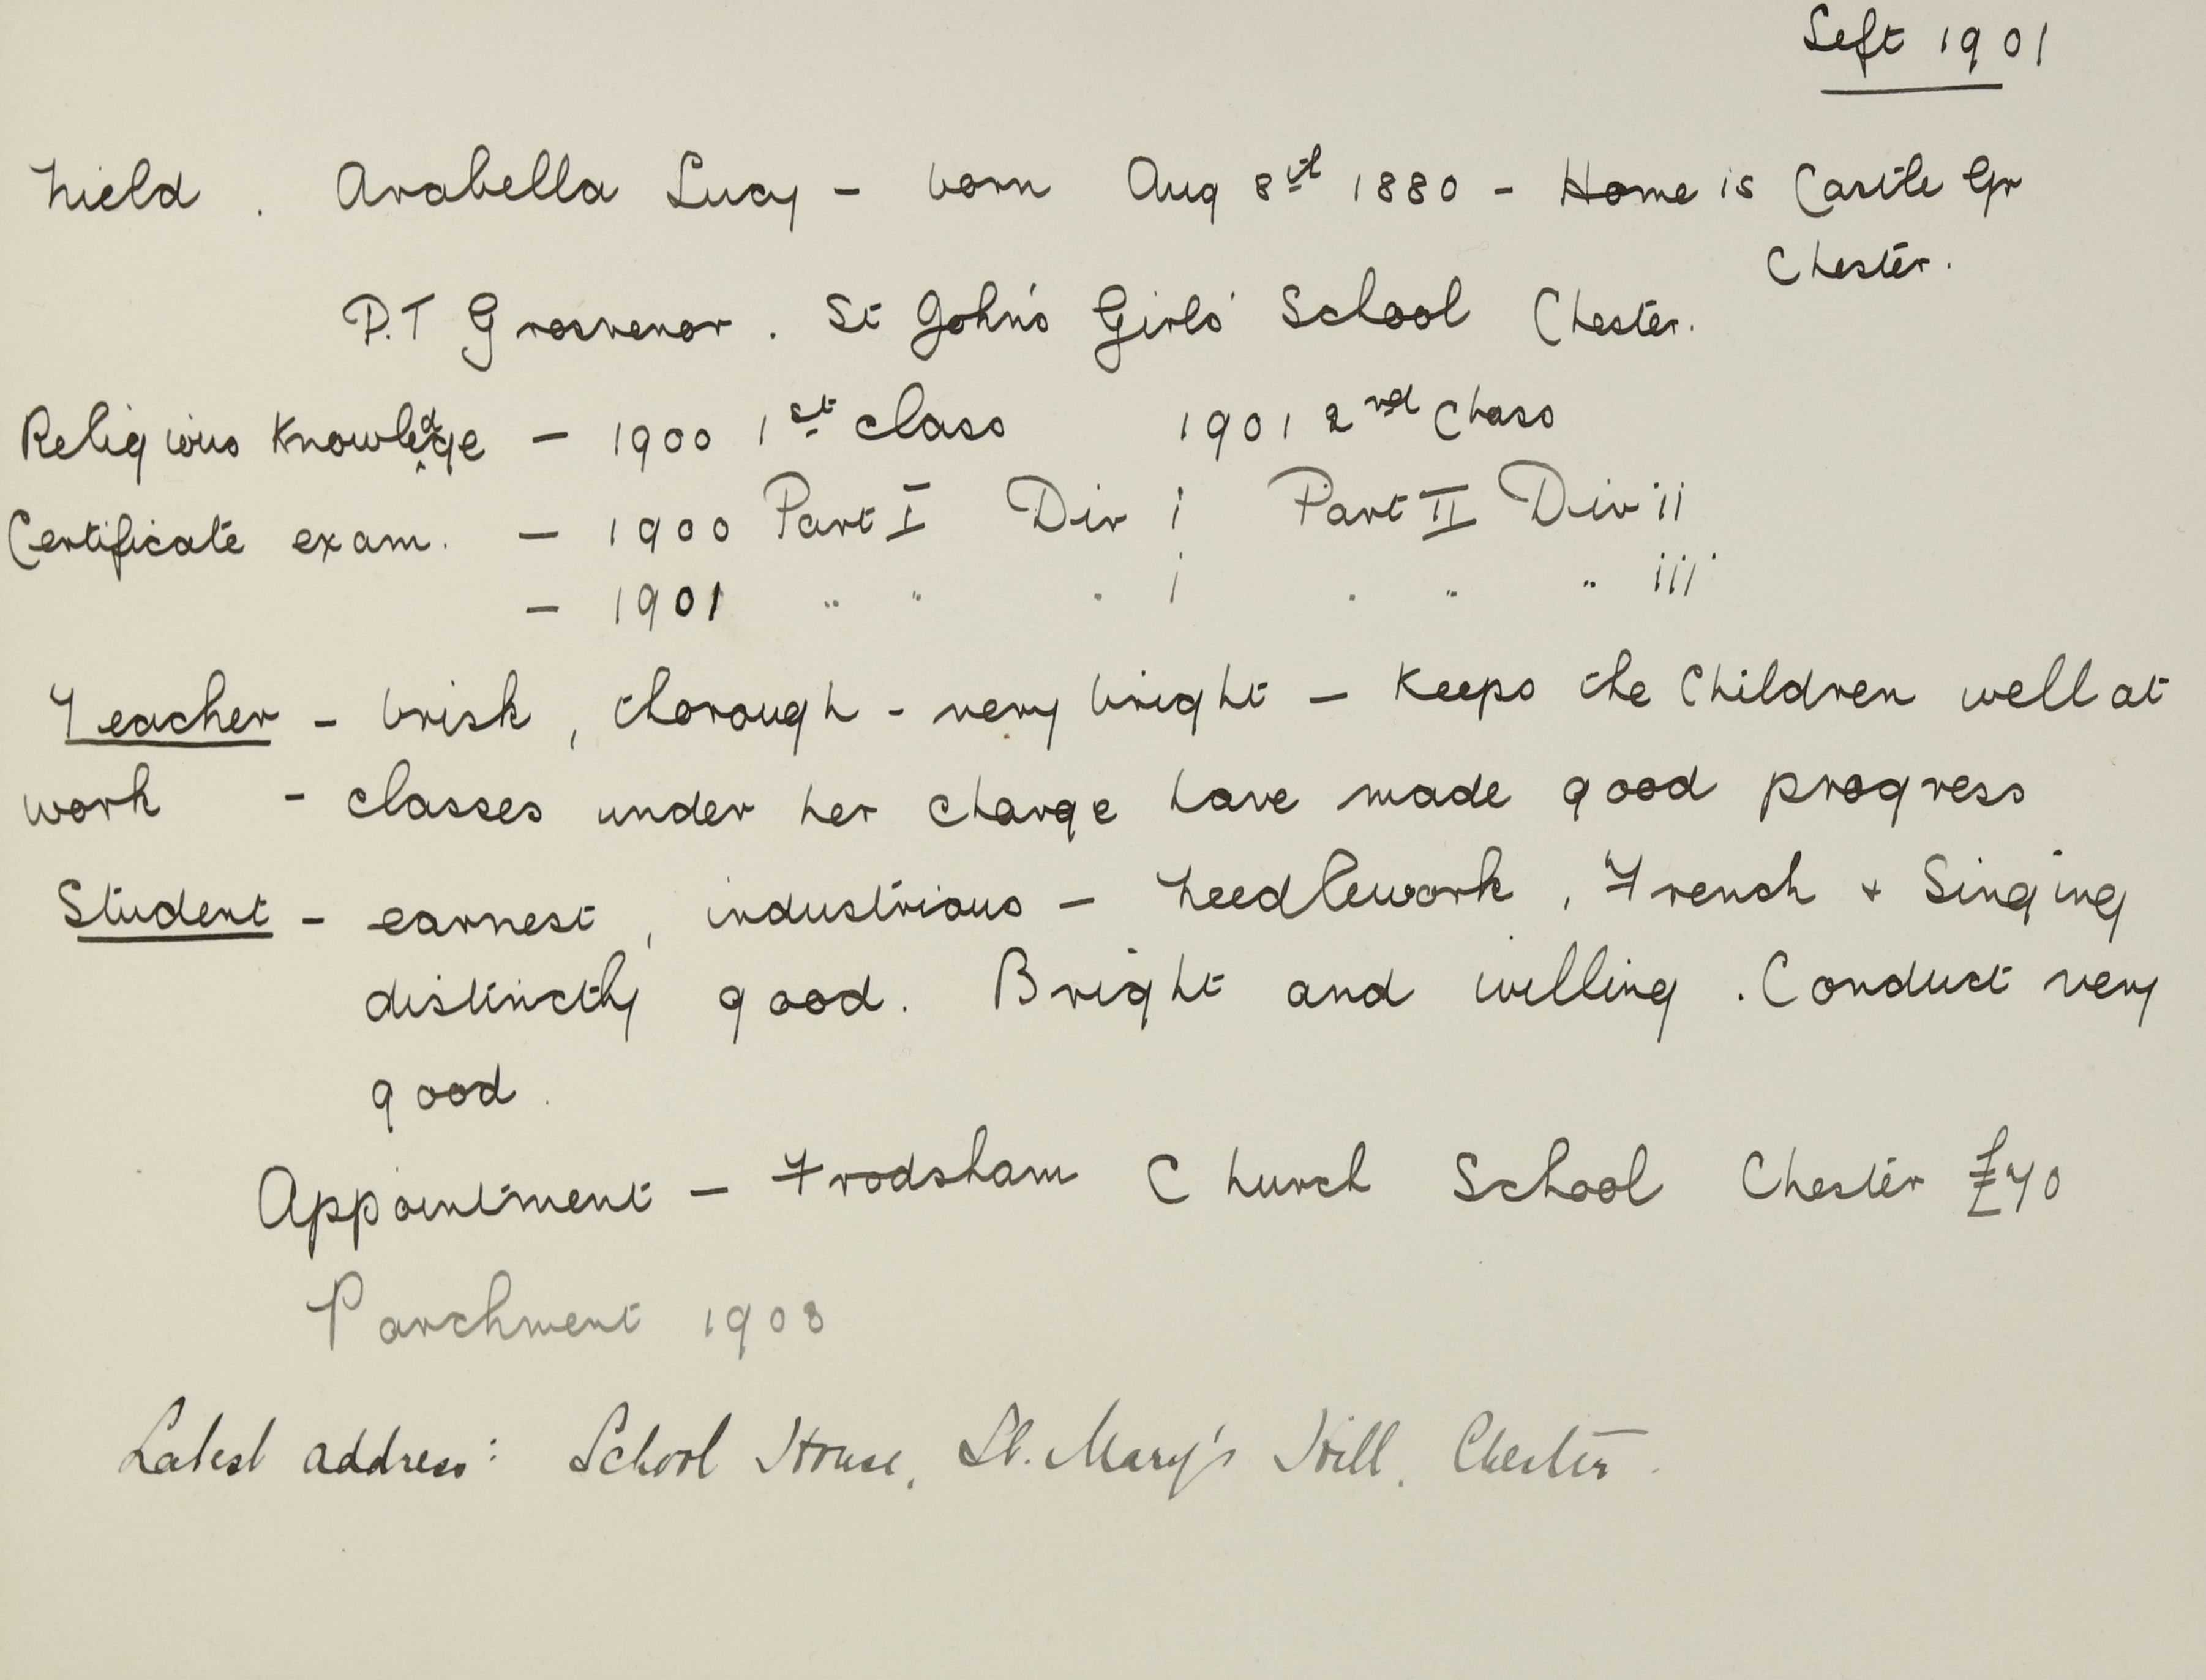 Left 1901
Nield . Arabella Lucy - born Aug 8th 1880 - Home is Castle Gr
Chester.
P.T Grosvenor . St John's Girls' School Chester.
Religious Knowledge - 1900 1st class 1901 2nd Class
Certificate exam. - 1900 Part I Div i Part II Div ii
- 1901 " " " i " " " iii
Teacher - brisk, thorough - very bright - Keeps the Children well at
work - classes under her charge have made good progress
Student - earnest, industrious - Needlework, French + Singing
distinctly good. Bright and willing. Conduct very
good.
Appointment - Frodsham Church School Chester £70
Parchment 1903
Latest address: School House, St. Mary's Hill, Chester.